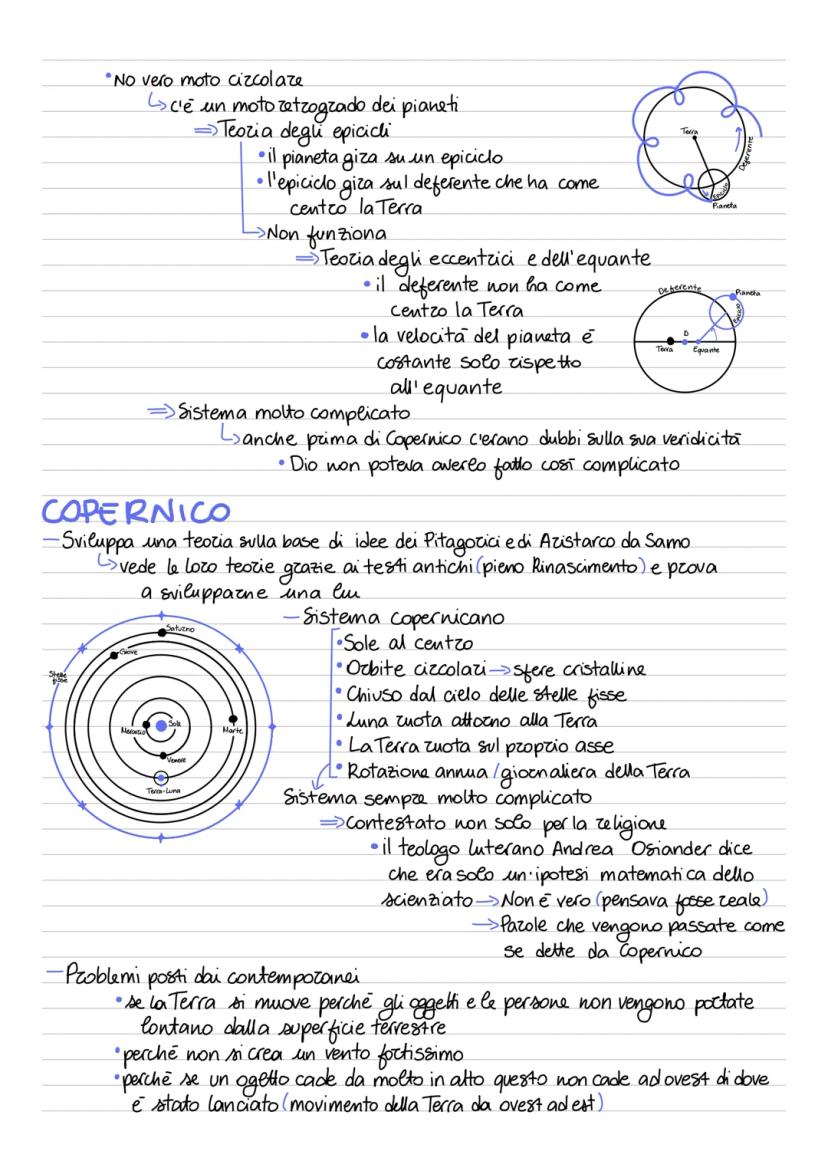 •No vero moto circolare
↳c'è un moto retrogrado dei pianeti
⇒Teoria degli epicicli
•il pianeta gira su un epiciclo
•l'epiciclo gira sul deferente che ha come
centro la Terra
→Non funziona
Terra
Deferente
Epiciclo
Pianeta
⇒Teoria degli eccentrici e dell'equante
•il deferente non ha come
centro la Terra
•la velocità del pianeta è
costante solo rispetto
all'equante
Deferente
Pianeta
Epiciclo
D
Terra
Equante
⇒Sistema molto complicato
↳anche prima di Copernico c'erano dubbi sulla sua veridicità
•Dio non poteva averlo fatto così complicato
COPERNICO
—Sviluppa una teoria sulla base di idee dei Pitagorici e di Aristarco da Samo
↳vede le loro teorie grazie ai testi antichi (pieno Rinascimento) e prova
a svilupparne una lui
Saturno
Giove
Stelle
fisse
Sole
Mercurio
Marte
Venere
Terra-Luna
—Sistema copernicano
•Sole al centro
•Orbite circolari→sfere cristalline
•Chiuso dal cielo delle stelle fisse
•Luna ruota attorno alla Terra
•La Terra ruota sul proprio asse
•Rotazione annua/giornaliera della Terra
Sistema sempre molto complicato
⇒Contestato non solo per la religione
•il teologo luterano Andrea Osiander dice
che era solo un'ipotesi matematica dello
scienziato→Non è vero (pensava fosse reale)
→Parole che vengono passate come
se dette da Copernico
—Problemi posti dai contemporanei
•se la Terra si muove perché gli oggetti e le persone non vengono portate
lontano dalla superficie terrestre
•perché non si crea un vento fortissimo
•perchè se un ogetto cade da molto in alto questo non cade ad ovest di dove
è stato lanciato (movimento della Terra da ovest ad est)